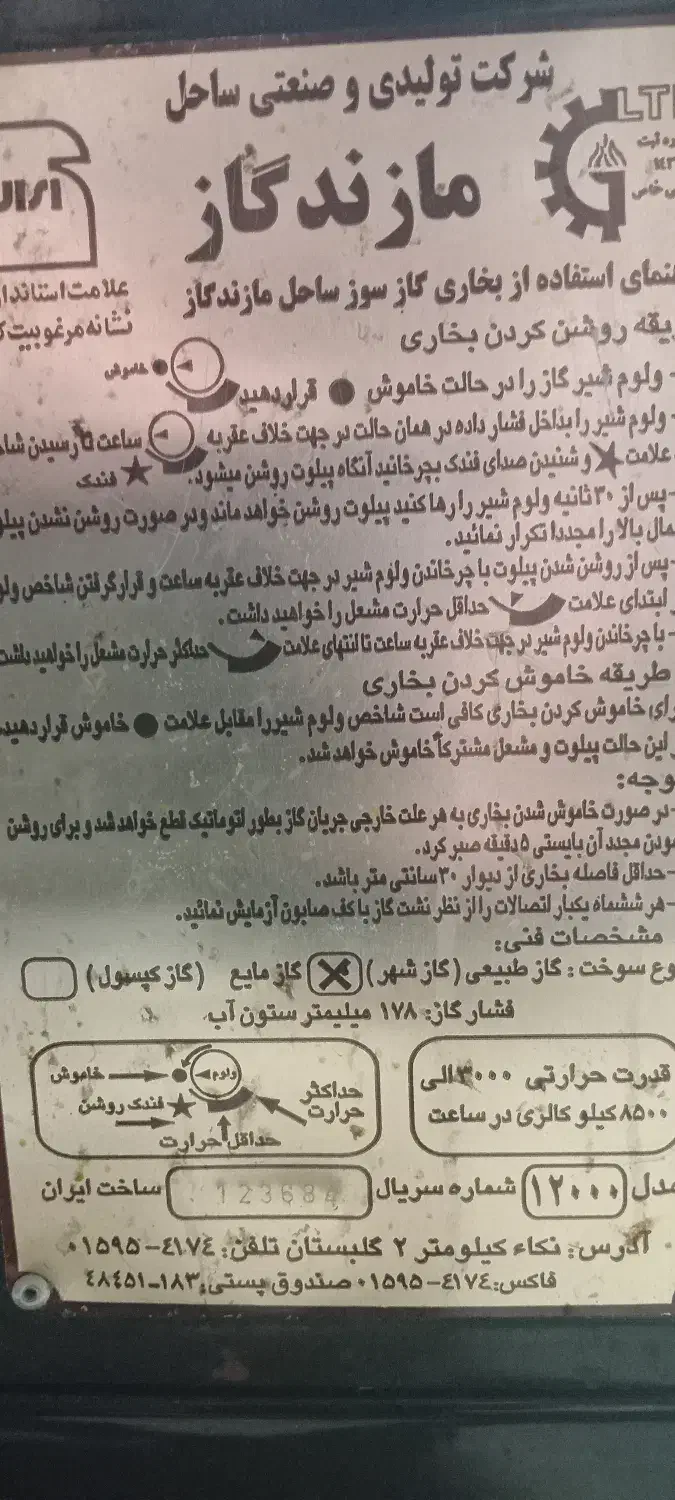 شرکت تولیدی و صنعتی ساحل
LT
مازندگاز
علامت استاندا
نشانه مرغوبیت
نمای استفاده از بخاری گاز سوز ساحل مازندگاز
یقه روشن کردن بخاری
خاموش
- ولوم شیر گاز را در حالت خاموش ● قرار دهید
- ولوم شیر را بداخل فشار داده در همان حالت در جهت خلاف عقربه ساعت تا رسیدن شا
علامت ★ و شنیدن صدای فندک بچرخانید آنگاه پیلوت روشن میشود. ★ فندک
- پس از ۳۰ ثانیه ولوم شیر را رها کنید پیلوت روشن خواهد ماند و در صورت روشن نشدن پیلو
مال بالا را مجددا تکرار نمائید.
- پس از روشن شدن پیلوت با چرخاندن ولوم شیر در جهت خلاف عقربه ساعت و قرار گرفتن شاخص ولو
ر ابتدای علامت حداقل حرارت مشعل را خواهید داشت.
- با چرخاندن ولوم شیر در جهت خلاف عقربه ساعت تا انتهای علامت حداکثر حرارت مشعل را خواهید داشت
طریقه خاموش کردن بخاری
رای خاموش کردن بخاری کافی است شاخص ولوم شیر را مقابل علامت ● خاموش قرار دهید
ر این حالت پیلوت و مشعل مشترکاً خاموش خواهد شد.
وجه:
- در صورت خاموش شدن بخاری به هر علت خارجی جریان گاز بطور اتوماتیک قطع خواهد شد و برای روشن
مودن مجدد آن بایستی ۵ دقیقه صبر کرد.
- حداقل فاصله بخاری از دیوار ۳۰ سانتی متر باشد.
- هر ششماه یکبار اتصالات را از نظر نشت گاز با کف صابون آزمایش نمائید.
مشخصات فنی:
وع سوخت: گاز طبیعی (گاز شهر) گاز مایع (گاز کپسول)
فشار گاز: ۱۷۸ میلیمتر ستون آب
قدرت حرارتی ۳۰۰۰ الی
۸۵۰۰ کیلو کالری در ساعت
ولوم
خاموش
حداکثر
حرارت
فندک روشن
حداقل حرارت
مدل ۱۲۰۰۰ شماره سریال 12368 ساخت ایران
آدرس: نکاء کیلومتر ۲ گلبستان تلفن: ۴۱۷۴-۰۱۵۹۵
فاکس: ۴۱۷۴-۰۱۵۹۵ صندوق پستی: ۱۸۳-۴۸۴۵۱